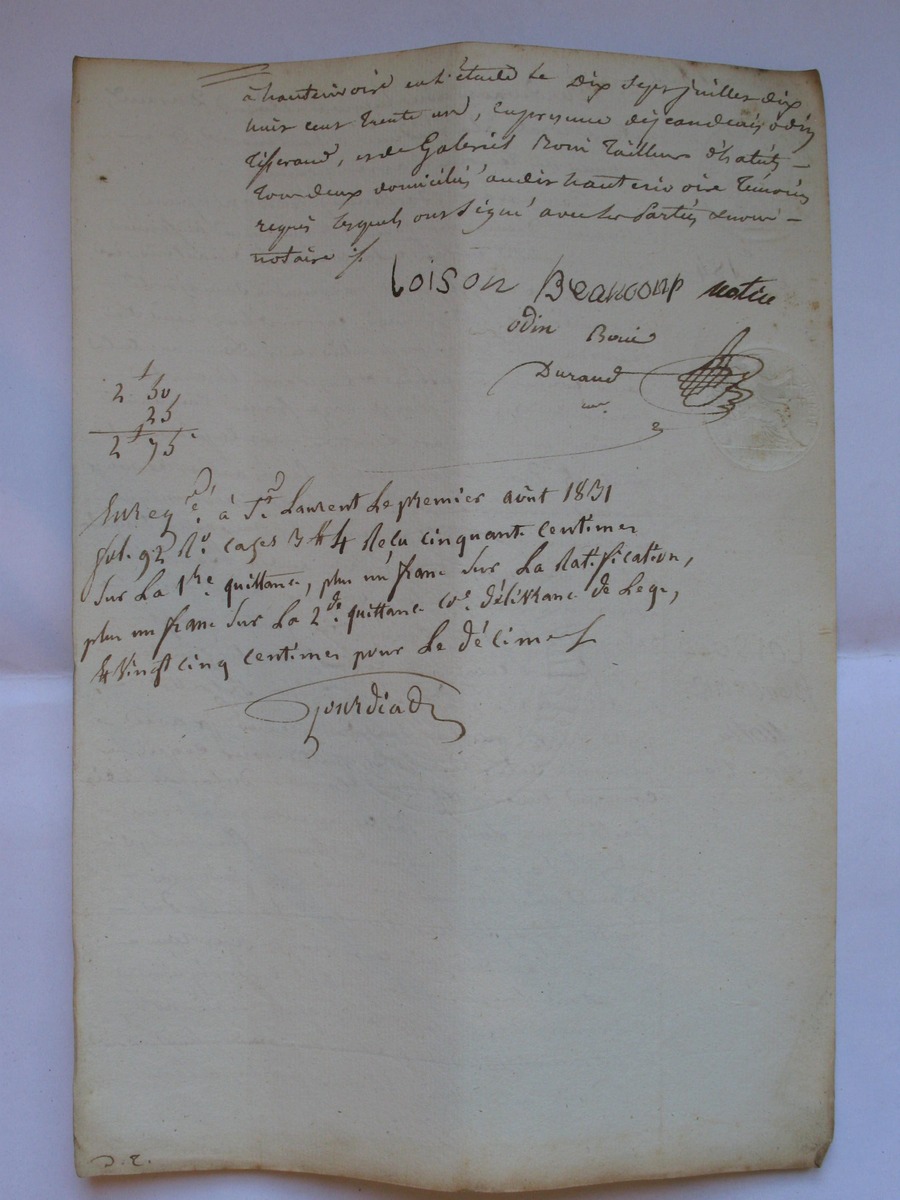 à hauterivoire en l'étude Le Dix Sept juillet dix
huit cent trente un, En présence de jean denis odin
tisserand, et de Gabriel Boni Tailleur d'habits
tous deux domiciliés audit hauterivoire Témoins
requis lesquels ont Signé avec les Parties & nous
notaire
Loison Beaucoup
odin
Durand
2 f 50
25
2 f 75
Enreg.é à St Laurent Le premier août 1831
fol. 92 Ro. cases 3 & 4 Reçu cinquante centimes
Sur La 1re quittance, plus un franc sur La Ratification,
plus un franc Sur La 2de quittance Délivrance de Legs,
& Vingt cinq Centimes pour Le Décime
Jourdiad